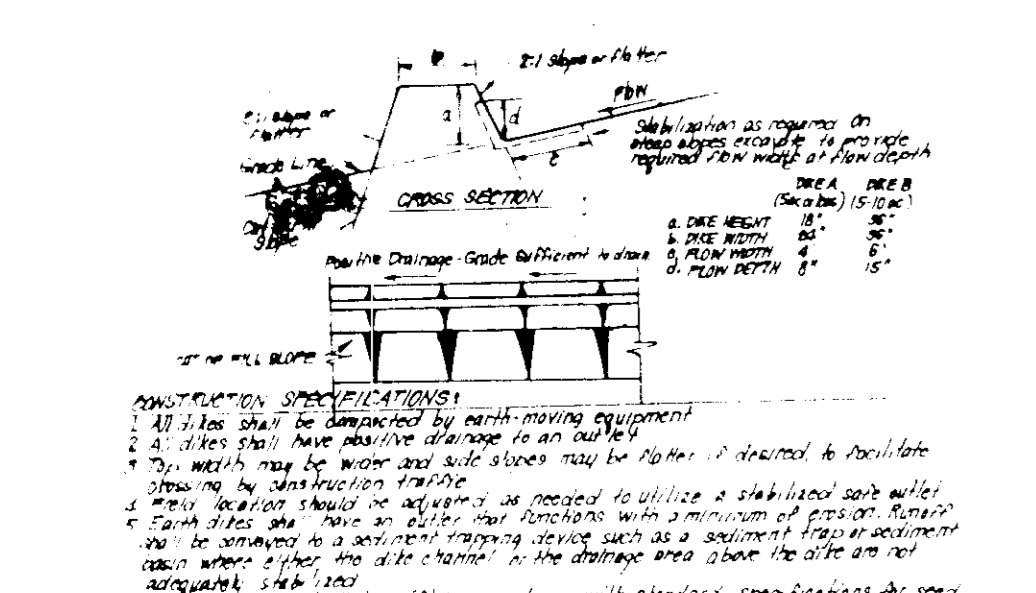 b
2:1 slope or flatter
Flow
a
d
2:1 slope or
flatter
Stabilization as required On
steep slopes excavate to provide
required flow width at flow depth
Grade Line
c
CROSS SECTION
Slope
DIKE A DIKE B
(5ac or less) (5-10 ac)
a. DIKE HEIGHT 18" 36"
b. DIKE WIDTH 24" 36"
c. FLOW WIDTH 4' 6'
d. FLOW DEPTH 8" 15"
Positive Drainage - Grade Sufficient to drain
CUT OR FILL SLOPE
CONSTRUCTION SPECIFICATIONS:
1 All dikes shall be compacted by earth-moving equipment
2 All dikes shall have positive drainage to an outlet
3 Top width may be wider and side slopes may be flatter if desired, to facilitate
crossing by construction traffic
4 Field location should be adjusted as needed to utilize a stabilized safe outlet
5 Earth dikes shall have an outlet that functions with a minimum of erosion. Runoff
shall be conveyed to a sediment trapping device such as a sediment trap or sediment
basin where either the dike channel or the drainage area above the dike are not
adequately stabilized
with standard specifications for seed